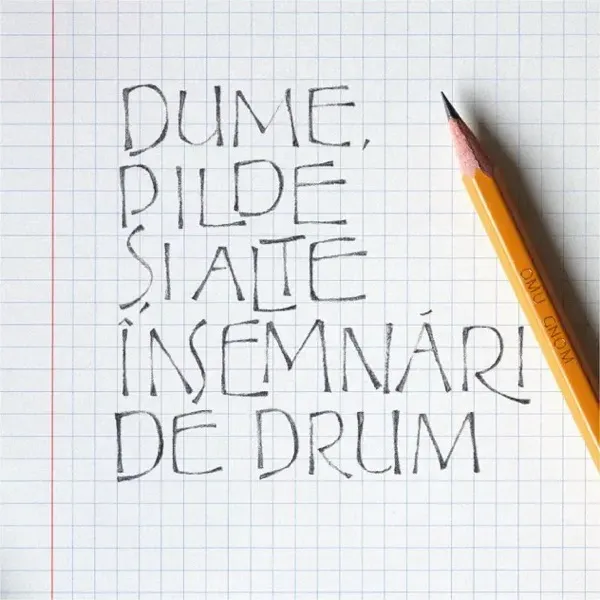 DUME,
PILDE
ȘI ALTE
ÎNSEMNĂRI
DE DRUM
OMU GNOM